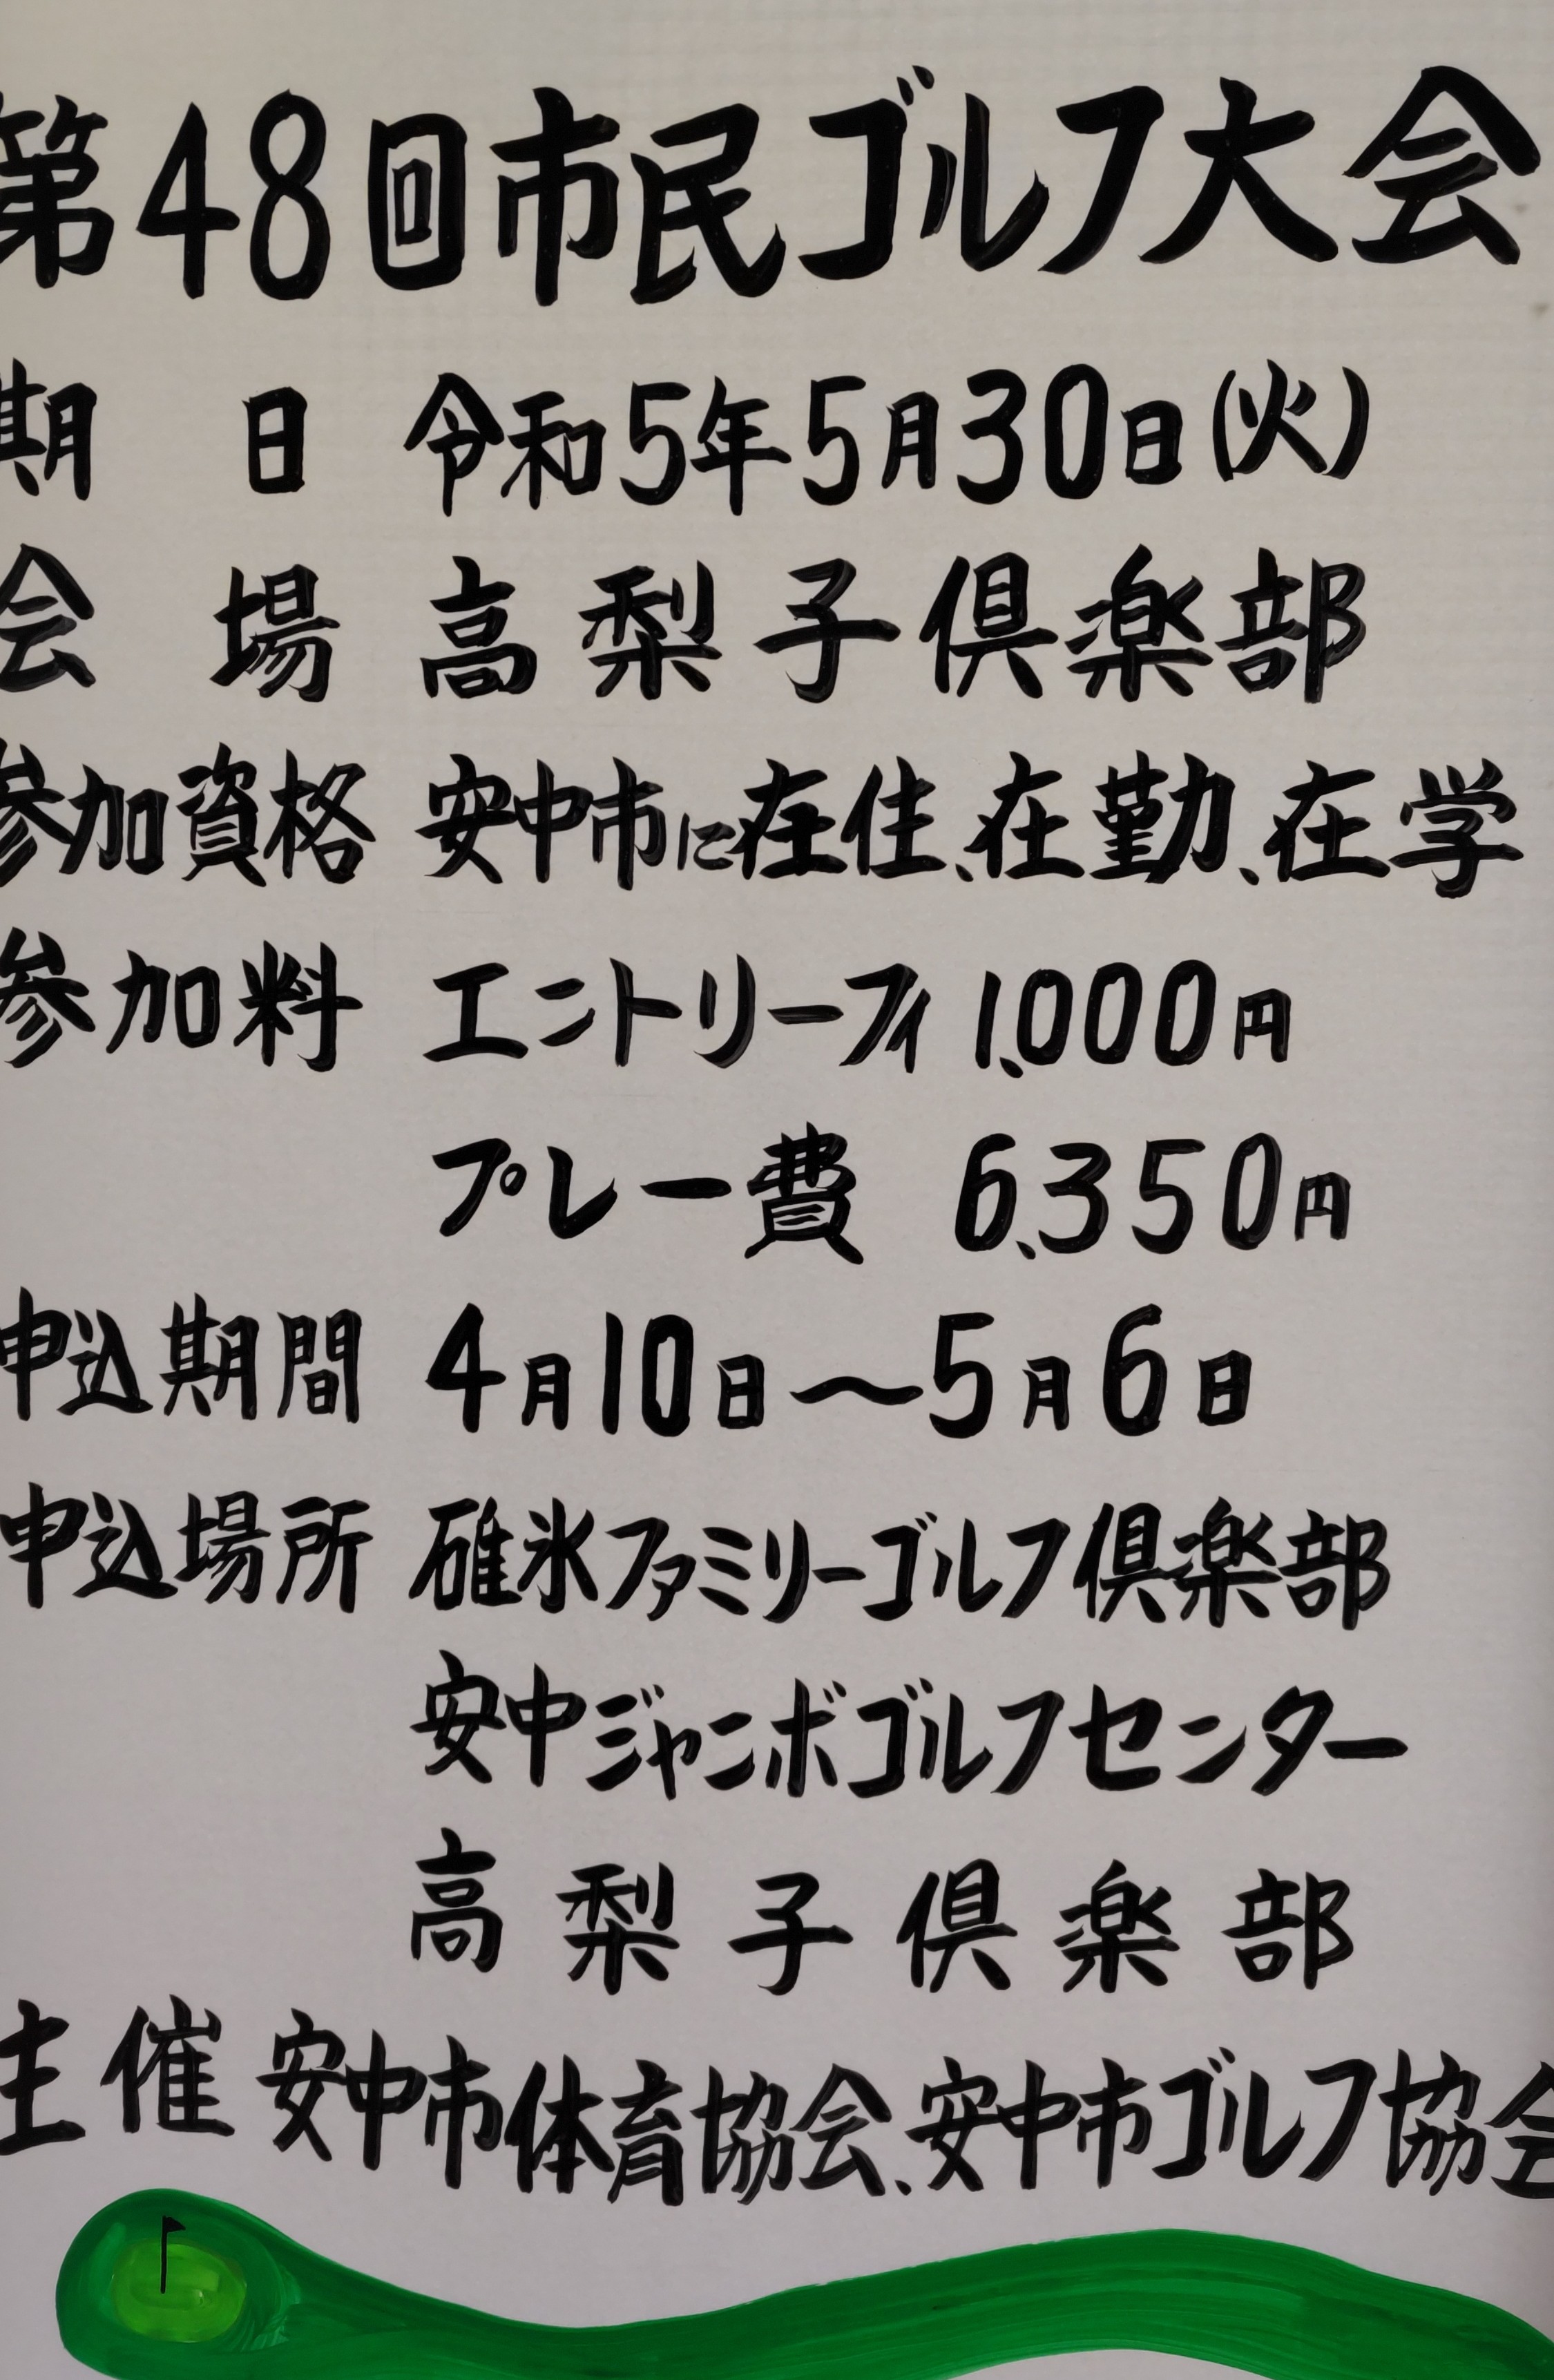 第48回市民ゴルフ大会
期日 令和5年5月30日(火)
会場 高梨子倶楽部
参加資格 安中市に在住、在勤、在学
参加料 エントリーフィ 1,000円
プレー費 6,350円
申込期間 4月10日〜5月6日
申込場所 碓氷ファミリーゴルフ倶楽部
安中ジャンボゴルフセンター
高梨子倶楽部
主催 安中市体育協会、安中市ゴルフ協会